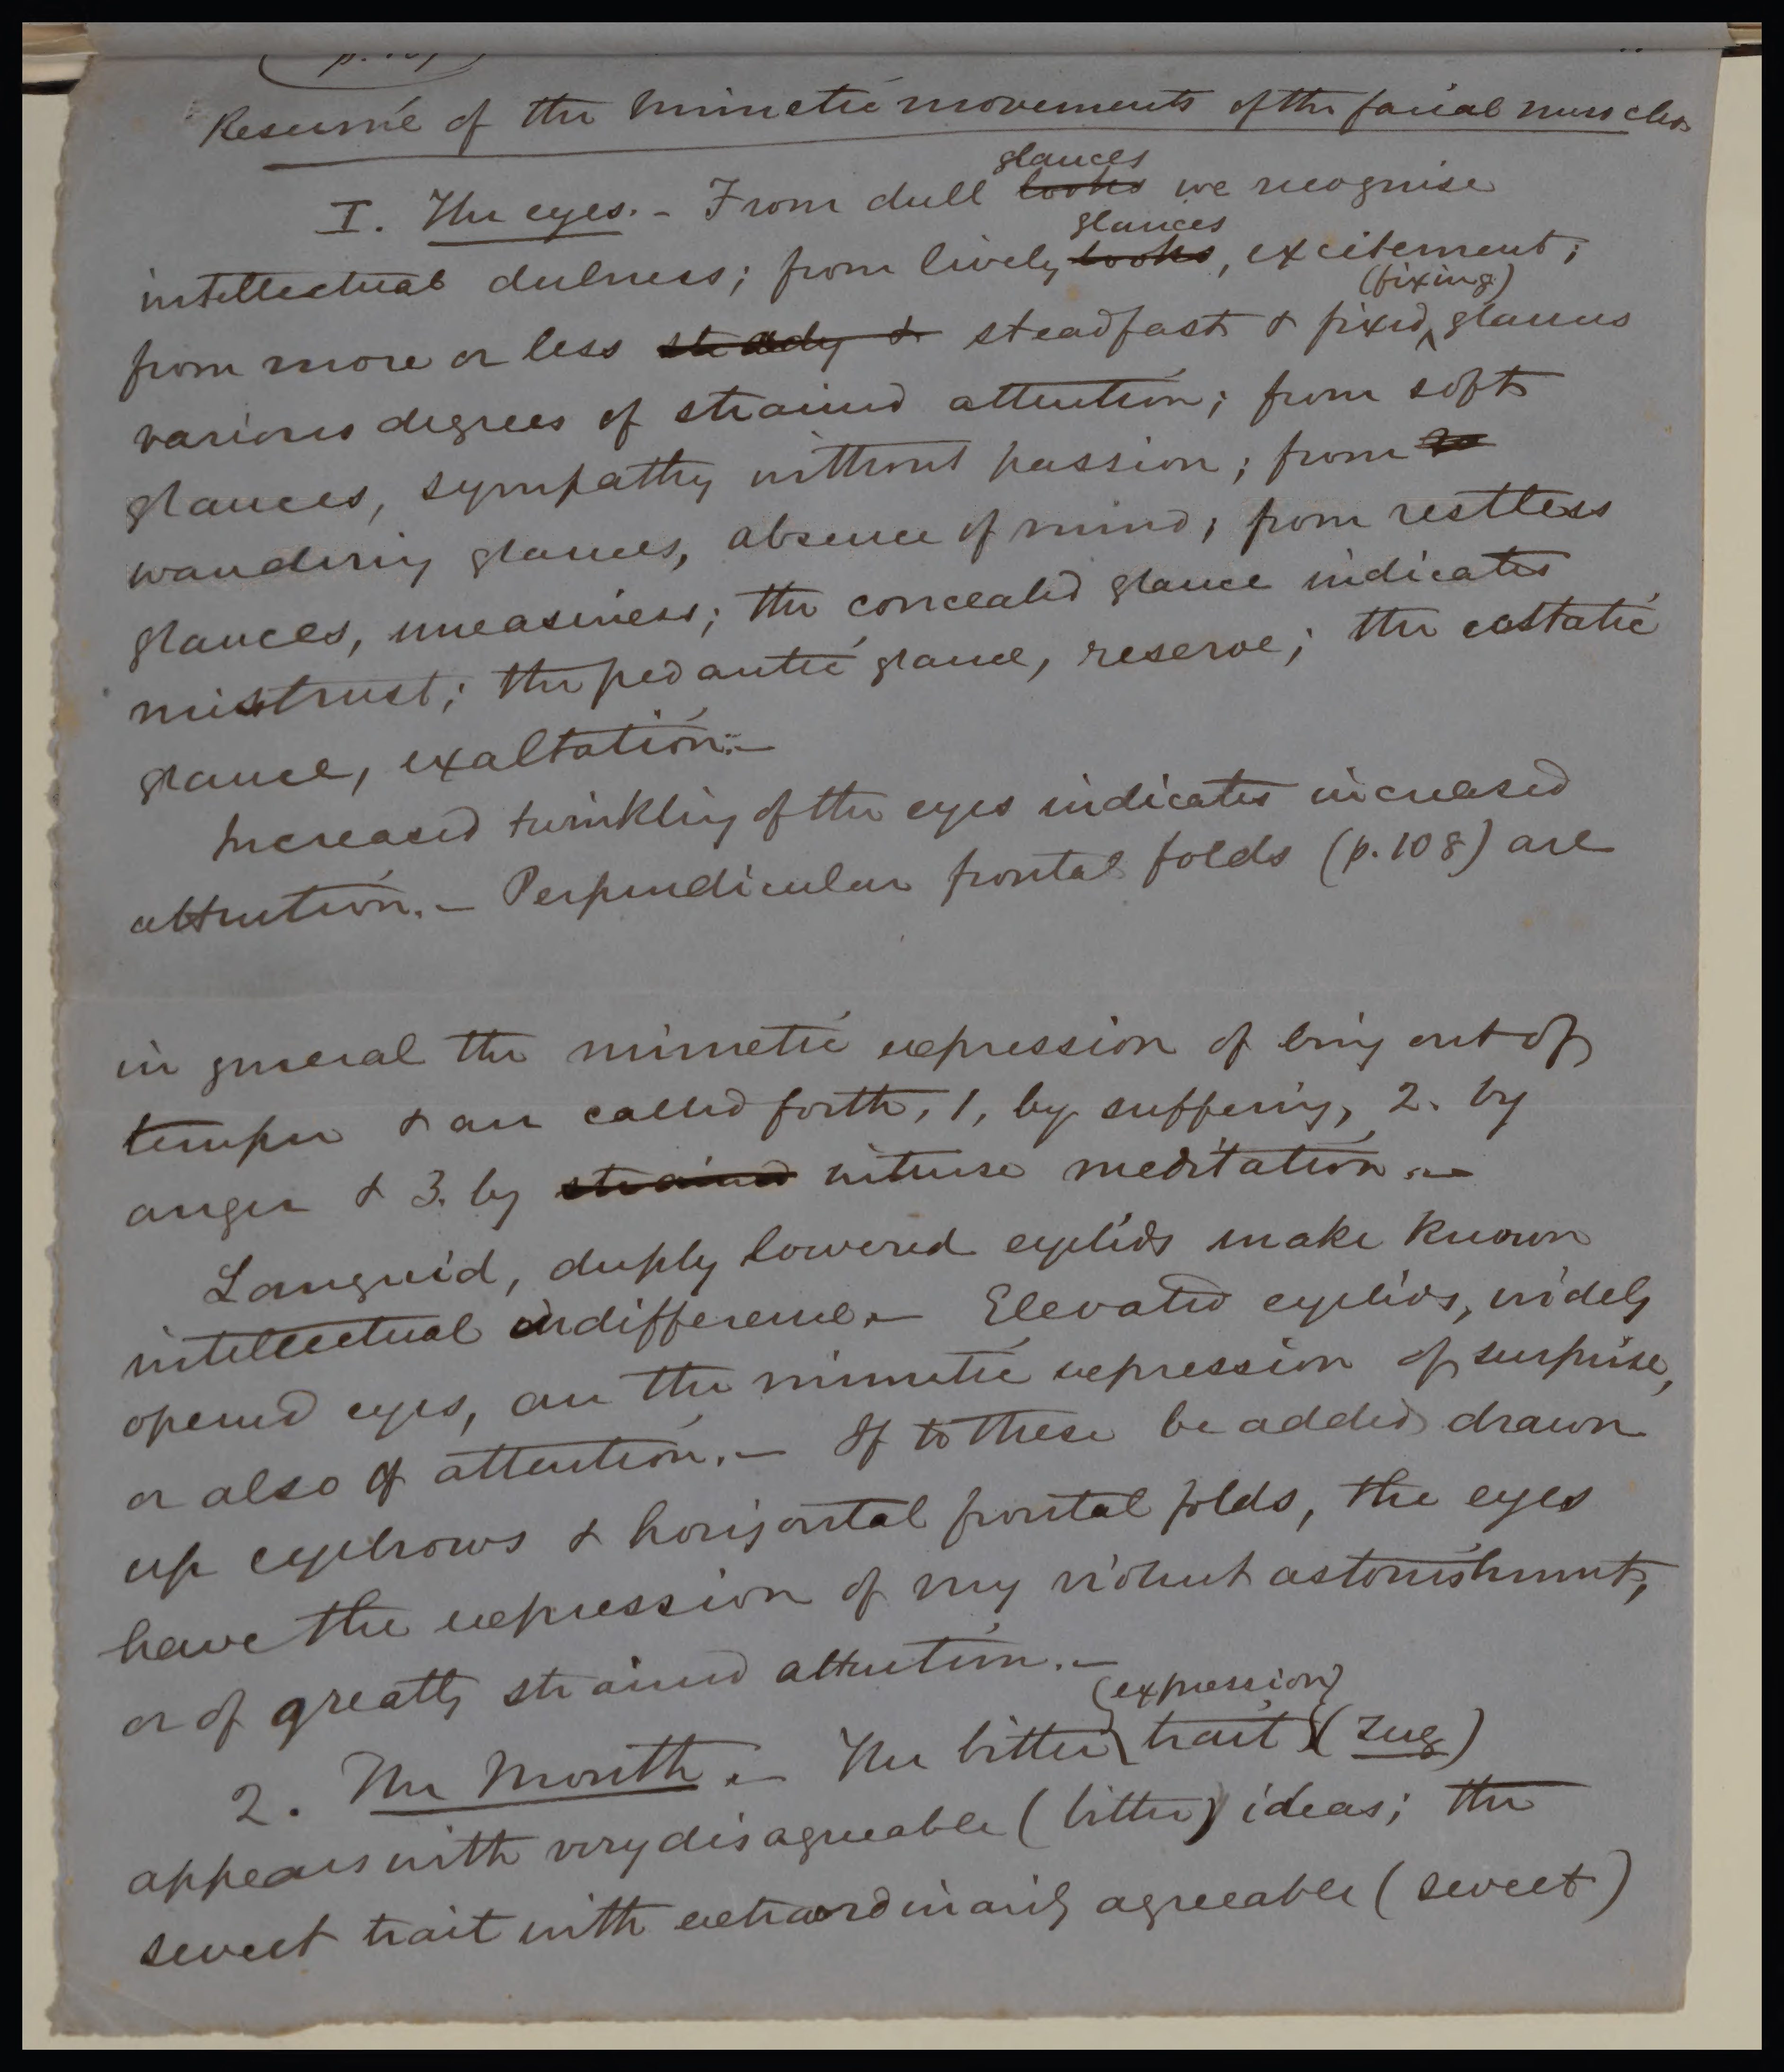 Resumé of the mimetic movements of the facial muscles
glances
I. The eyes. - From dull looks we recognise
glances
intellectual dulness; from lively looks, excitement;
(fixing)
from more or less steady & steadfast & fixed glances
various degrees of strained attention; from soft
glances, sympathy without passion; from
wandering glances, absence of mind; from restless
glances, uneasiness; the concealed glance indicates
mistrust; the pedantic glance, reserve; the ecstatic
glance, exaltation. -
Increased twinkling of the eyes indicates increased
attention. - Perpendicular frontal folds (p. 108) are
in general the mimetic expression of being out of
temper & are called forth, 1, by suffering, 2. by
anger & 3. by strained intense meditation. -
Languid, deeply lowered eyelids make known
intellectual indifference. - Elevated eyelids, widely
opened eyes, are the mimetic expression of surprise,
or also of attention. - If to these be added drawn
up eyebrows & horizontal frontal folds, the eyes
have the expression of very violent astonishment,
or of greatly strained attention. -
(expression)
2. The Mouth. - The bitter trait (Zug)
appears with very disagreeable (bitter) ideas; the
sweet trait with extraordinarily agreeable (sweet)